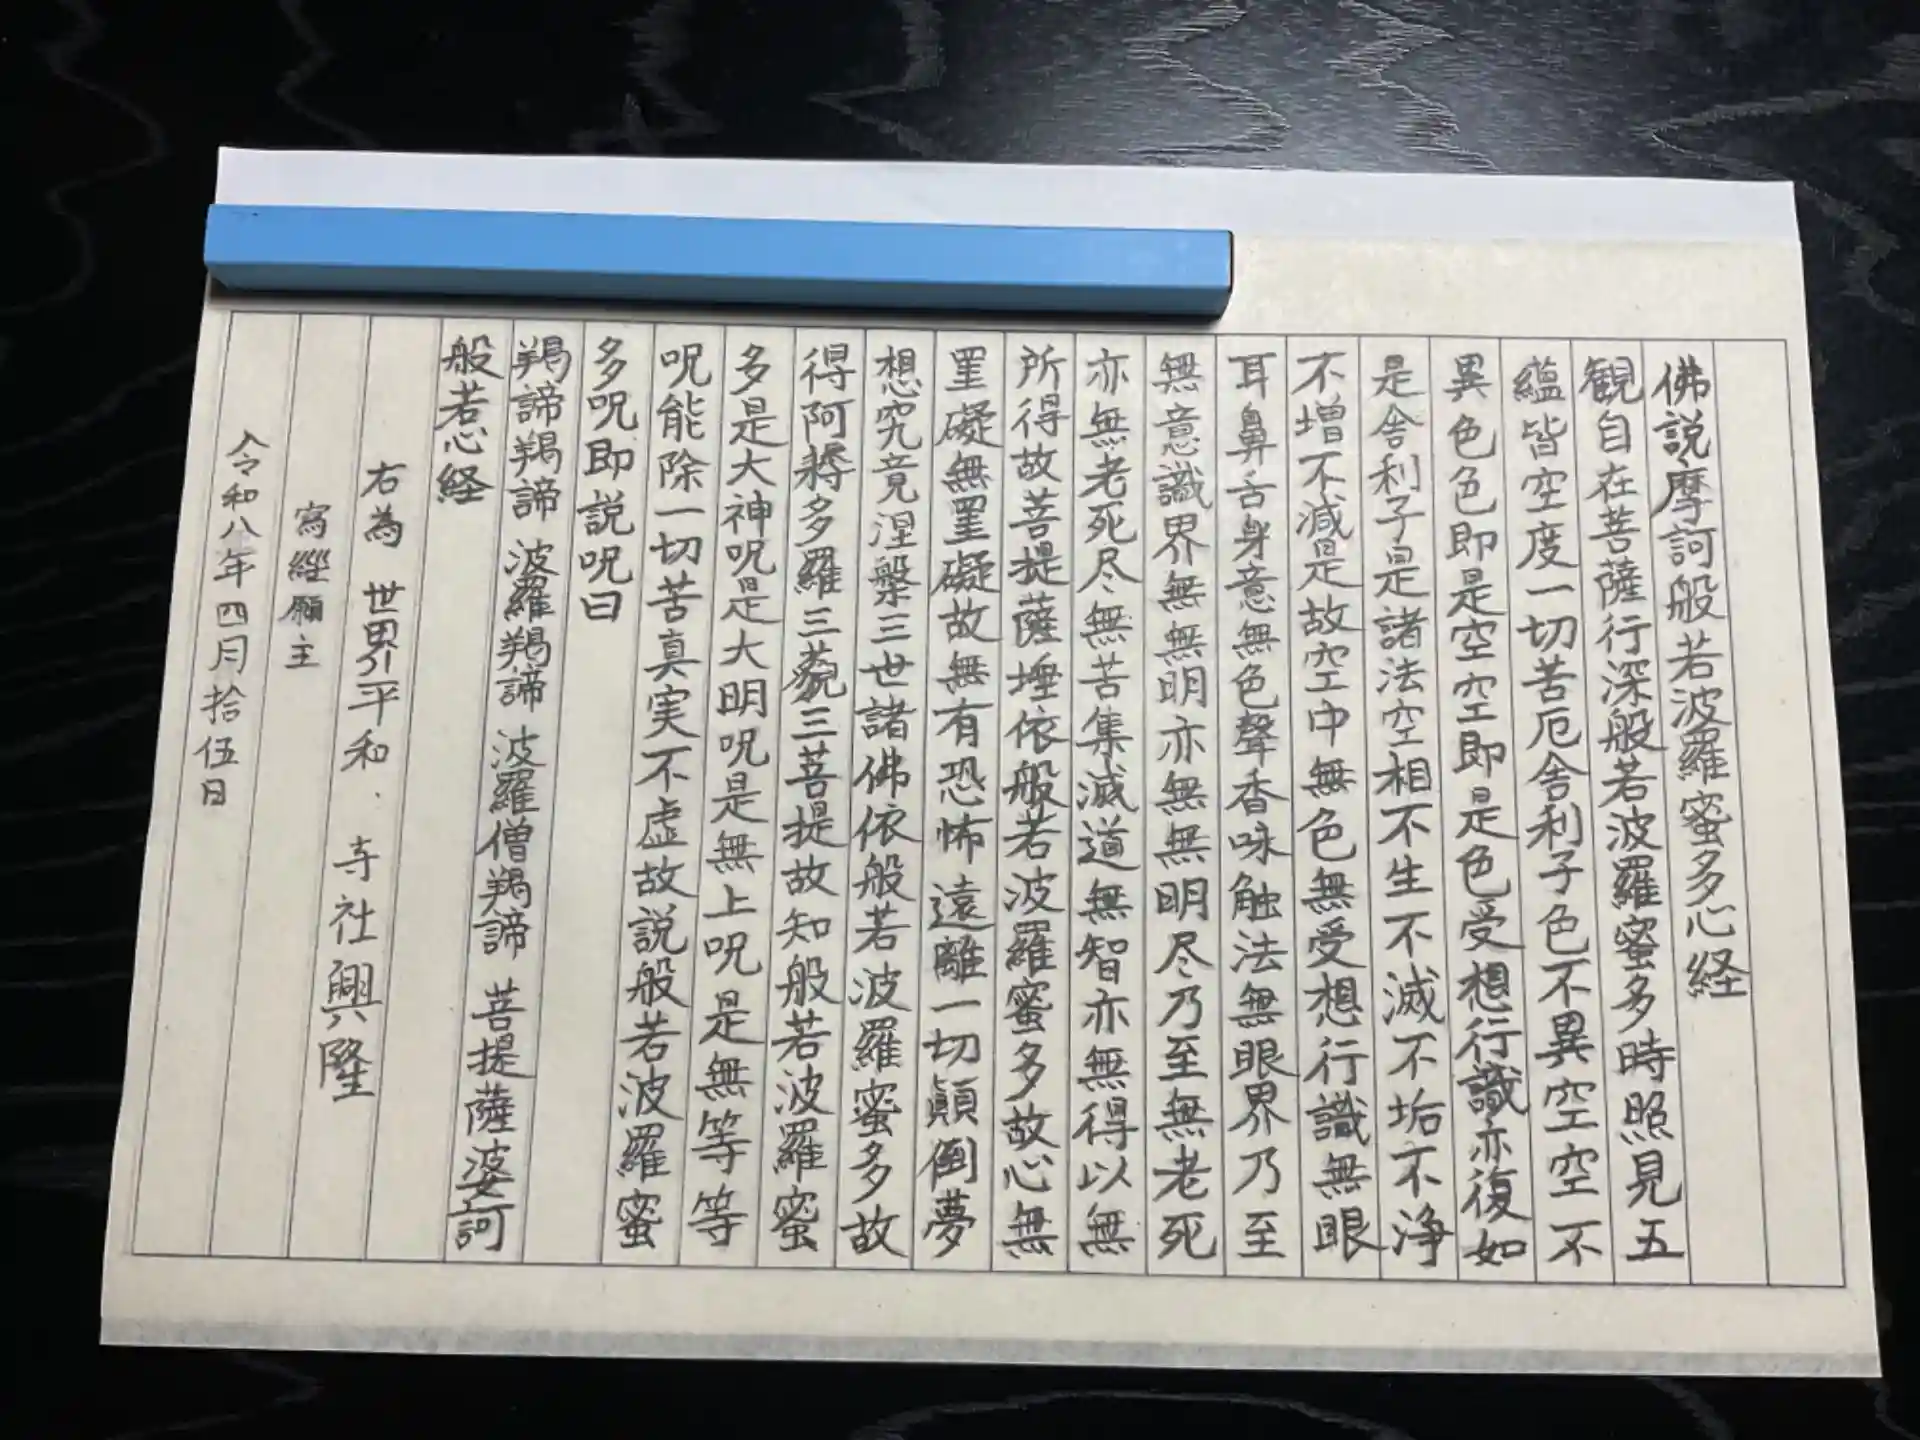 佛説摩訶般若波羅蜜多心経
観自在菩薩行深般若波羅蜜多時照見五
蘊皆空度一切苦厄舎利子色不異空空不
異色色即是空空即是色受想行識亦復如
是舎利子是諸法空相不生不滅不垢不浄
不増不減是故空中無色無受想行識無眼
耳鼻舌身意無色聲香味触法無眼界乃至
無意識界無無明亦無無明尽乃至無老死
亦無老死尽無苦集滅道無智亦無得以無
所得故菩提薩埵依般若波羅蜜多故心無
罣礙無罣礙故無有恐怖遠離一切顛倒夢
想究竟涅槃三世諸佛依般若波羅蜜多故
得阿耨多羅三藐三菩提故知般若波羅蜜
多是大神呪是大明呪是無上呪是無等等
呪能除一切苦真実不虚故説般若波羅蜜
多呪即説呪曰
羯諦羯諦 波羅羯諦 波羅僧羯諦 菩提薩婆訶
般若心経
右為 世界平和、寺社興隆
寫經願主
令和八年四月拾伍日